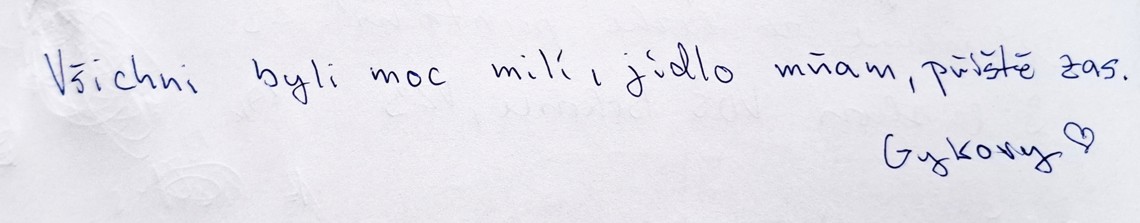 Všichni byli moc milí, jídlo mňam, příště zas.
Gykovy ♡